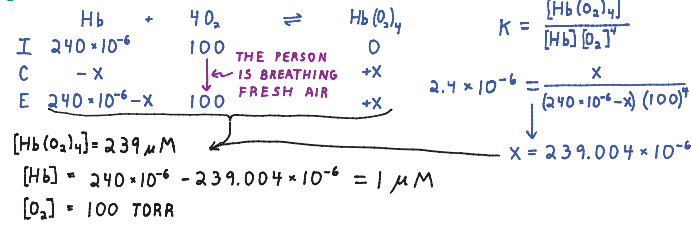 Hb + 4O₂ ⇌ Hb(O₂)₄
I 240×10⁻⁶ 100 0
C -x +x
E 240×10⁻⁶-x 100 +x
THE PERSON
IS BREATHING
FRESH AIR
K = [Hb(O₂)₄] / [Hb][O₂]⁴
2.4×10⁻⁶ = x / (240×10⁻⁶-x) (100)⁴
x = 239.004×10⁻⁶
[Hb(O₂)₄] = 239 μM
[Hb] = 240×10⁻⁶ - 239.004×10⁻⁶ = 1 μM
[O₂] = 100 TORR